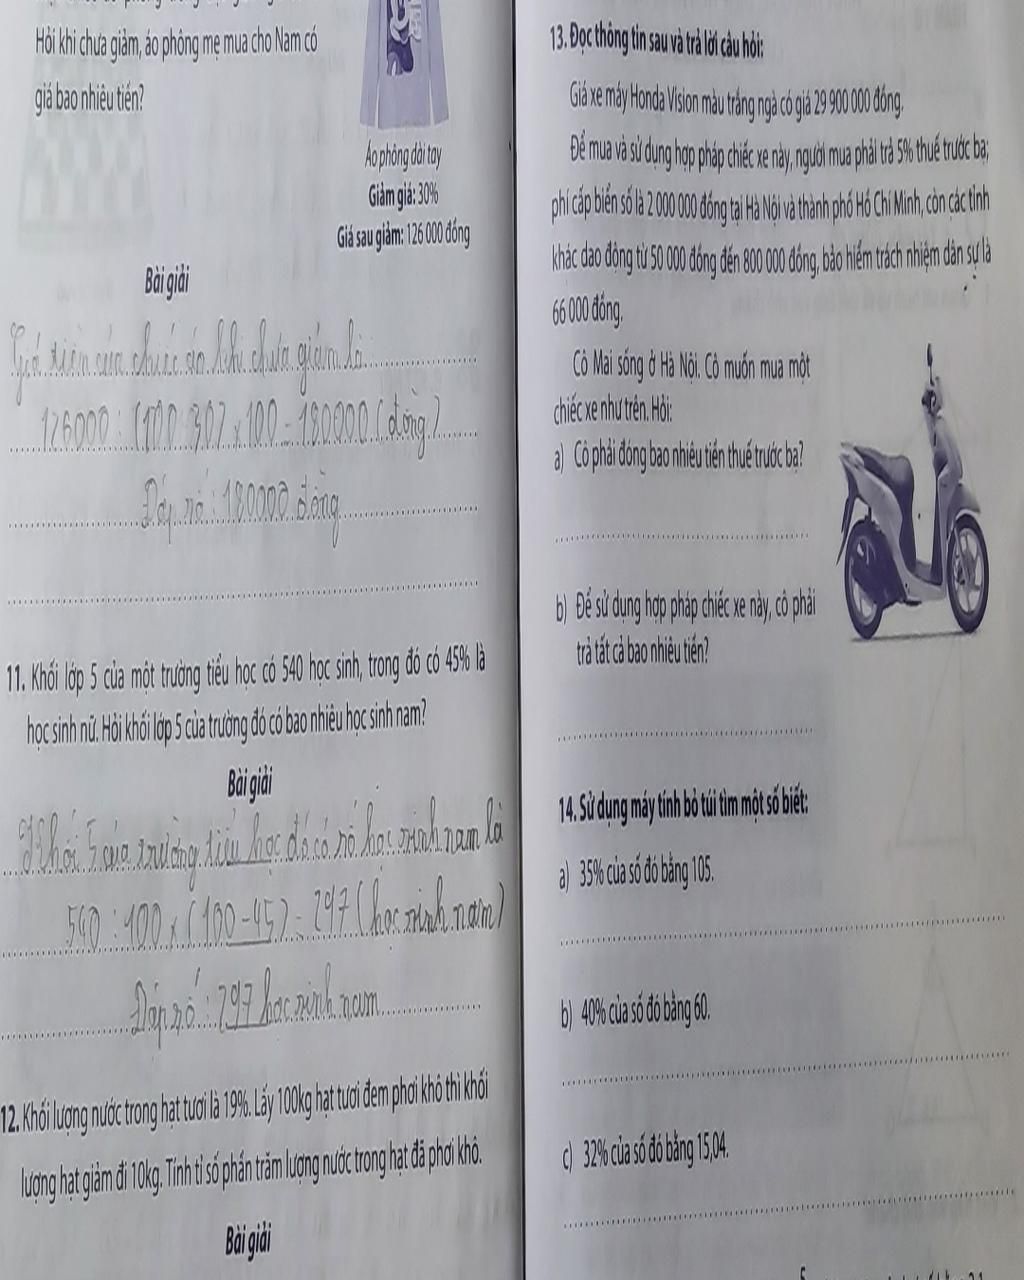 Hỏi khi chưa giảm, áo phông mẹ mua cho Nam có
giá bao nhiêu tiền?
Áo phông dài tay
Giảm giá: 30%
Giá sau giảm: 126 000 đồng
Bài giải
Giá tiền của chiếc áo khi chưa giảm là
126000 : (100 - 30) x 100 = 180000 (đồng)
Đáp số : 180000 đồng
11. Khối lớp 5 của một trường tiểu học có 540 học sinh, trong đó có 45% là
học sinh nữ. Hỏi khối lớp 5 của trường đó có bao nhiêu học sinh nam?
Bài giải
Khối 5 của trường tiểu học đó có số học sinh nam là
540 : 100 x (100 - 45) = 297 (học sinh nam)
Đáp số : 297 học sinh nam
12. Khối lượng nước trong hạt tươi là 19%. Lấy 100kg hạt tươi đem phơi khô thì khối
lượng hạt giảm đi 10kg. Tính tỉ số phần trăm lượng nước trong hạt đã phơi khô.
Bài giải
13. Đọc thông tin sau và trả lời câu hỏi:
Giá xe máy Honda Vision màu trắng ngà có giá 29 900 000 đồng.
Để mua và sử dụng hợp pháp chiếc xe này, người mua phải trả 5% thuế trước bạ;
phí cấp biển số là 2 000 000 đồng tại Hà Nội và thành phố Hồ Chí Minh, còn các tỉnh
khác dao động từ 50 000 đồng đến 800 000 đồng, bảo hiểm trách nhiệm dân sự là
66 000 đồng.
Cô Mai sống ở Hà Nội. Cô muốn mua một
chiếc xe như trên. Hỏi:
a) Cô phải đóng bao nhiêu tiền thuế trước bạ?
b) Để sử dụng hợp pháp chiếc xe này, cô phải
trả tất cả bao nhiêu tiền?
14. Sử dụng máy tính bỏ túi tìm một số biết:
a) 35% của số đó bằng 105.
b) 40% của số đó bằng 60.
c) 32% của số đó bằng 15,04.